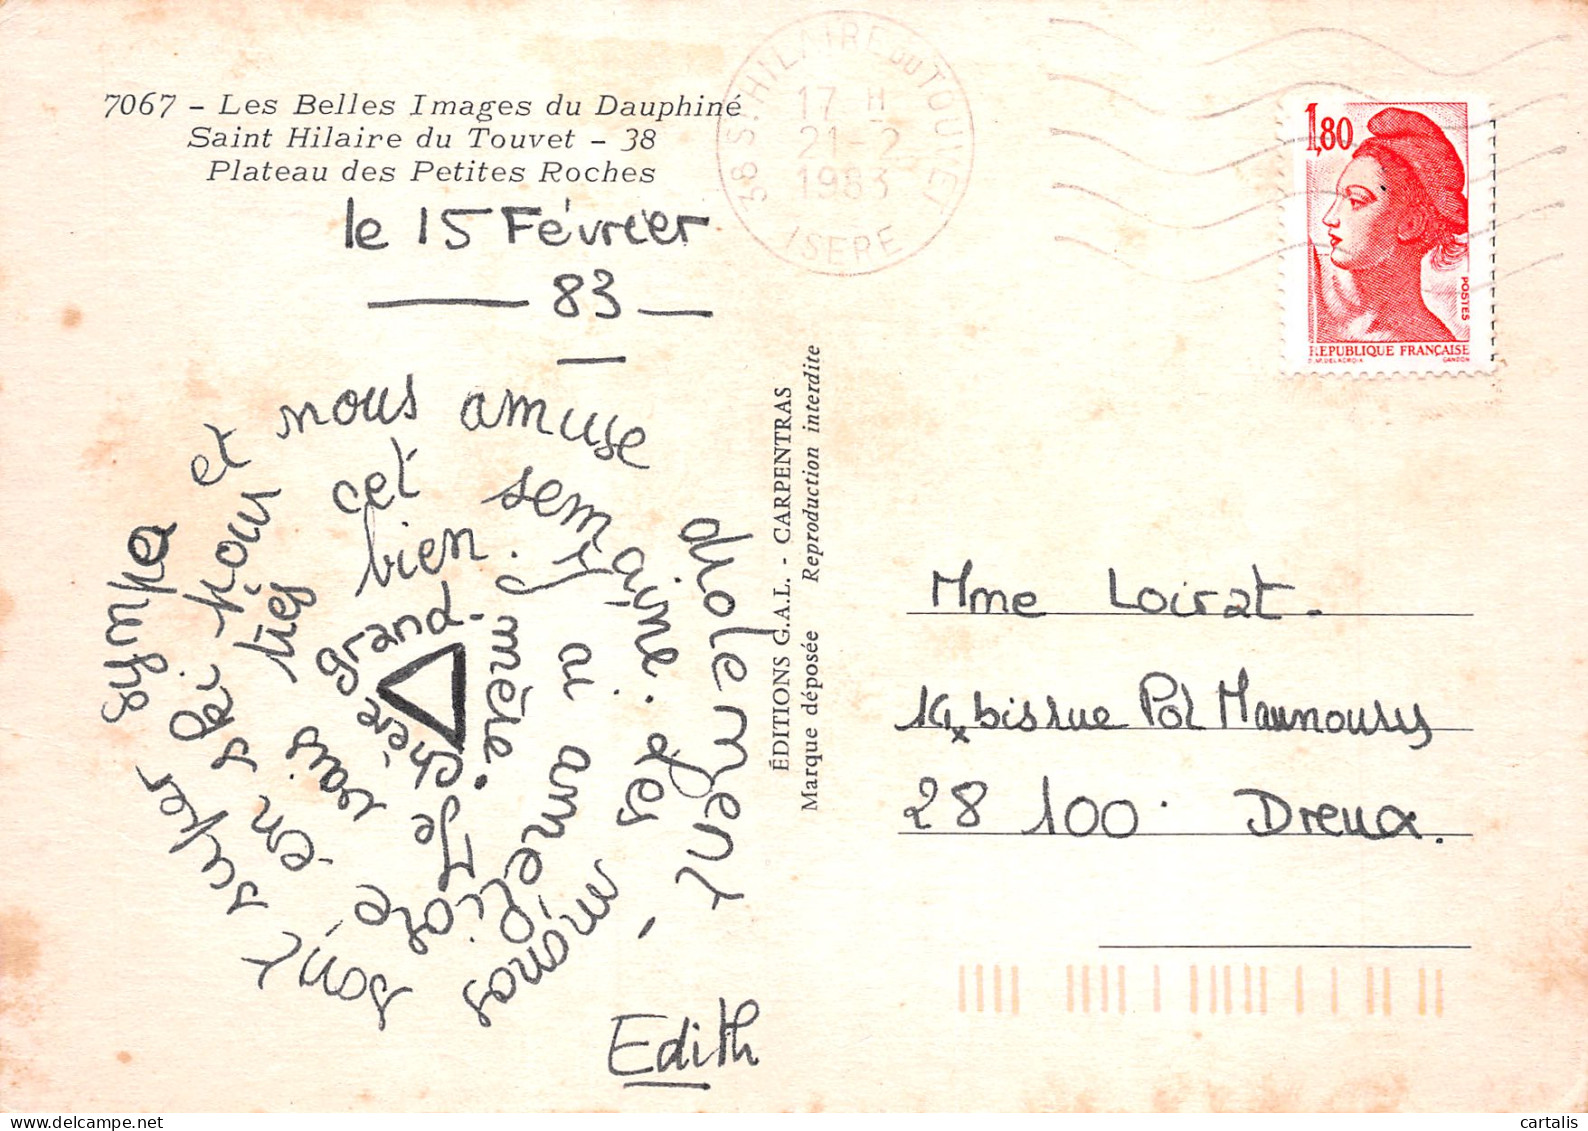 7067 - Les Belles Images du Dauphiné
Saint Hilaire du Touvet - 38
Plateau des Petites Roches
le 15 Février
83
chère grand-mère. Je vais très bien. J'ai amélioré en ski pour cet semaine. les monos sont super sympa et nous amuse drolement -
Edith
ÉDITIONS G.A.L. - CARPENTRAS
Marque déposée Reproduction interdite
38 S. HILAIRE DU TOUVET
17 H
21-2
1983
ISERE
1,80
POSTES
REPUBLIQUE FRANÇAISE
D'AP. DELACROIX GANDON
Mme Loirat.
14 bis rue Pol Maunoury
28 100 Dreux.
cartalis